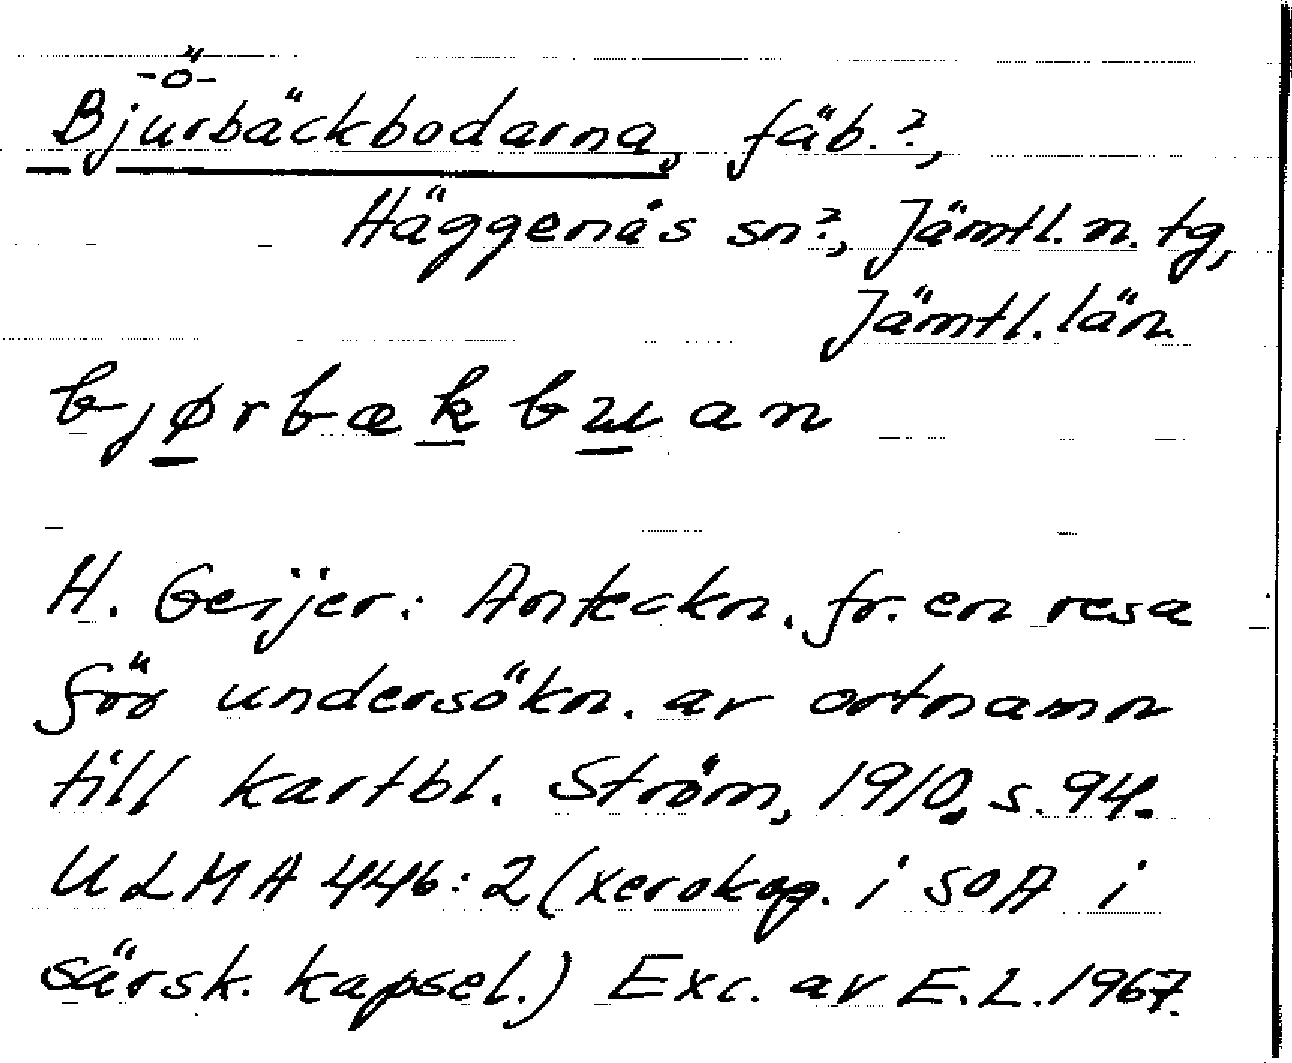 -ö-
Bjurbäckbodarna, fäb.?,
Häggenås sn?, Jämtl. n. tg,
Jämtl. län
bjørbækbuan
H. Geijer: Anteckn. fr. en resa
för undersökn. av ortnamn
till kartbl. Ström, 1910, s. 94.
ULMA 446:2 (xerokop. i SOA i
särsk. kapsel.) Exc. av E.L. 1967.